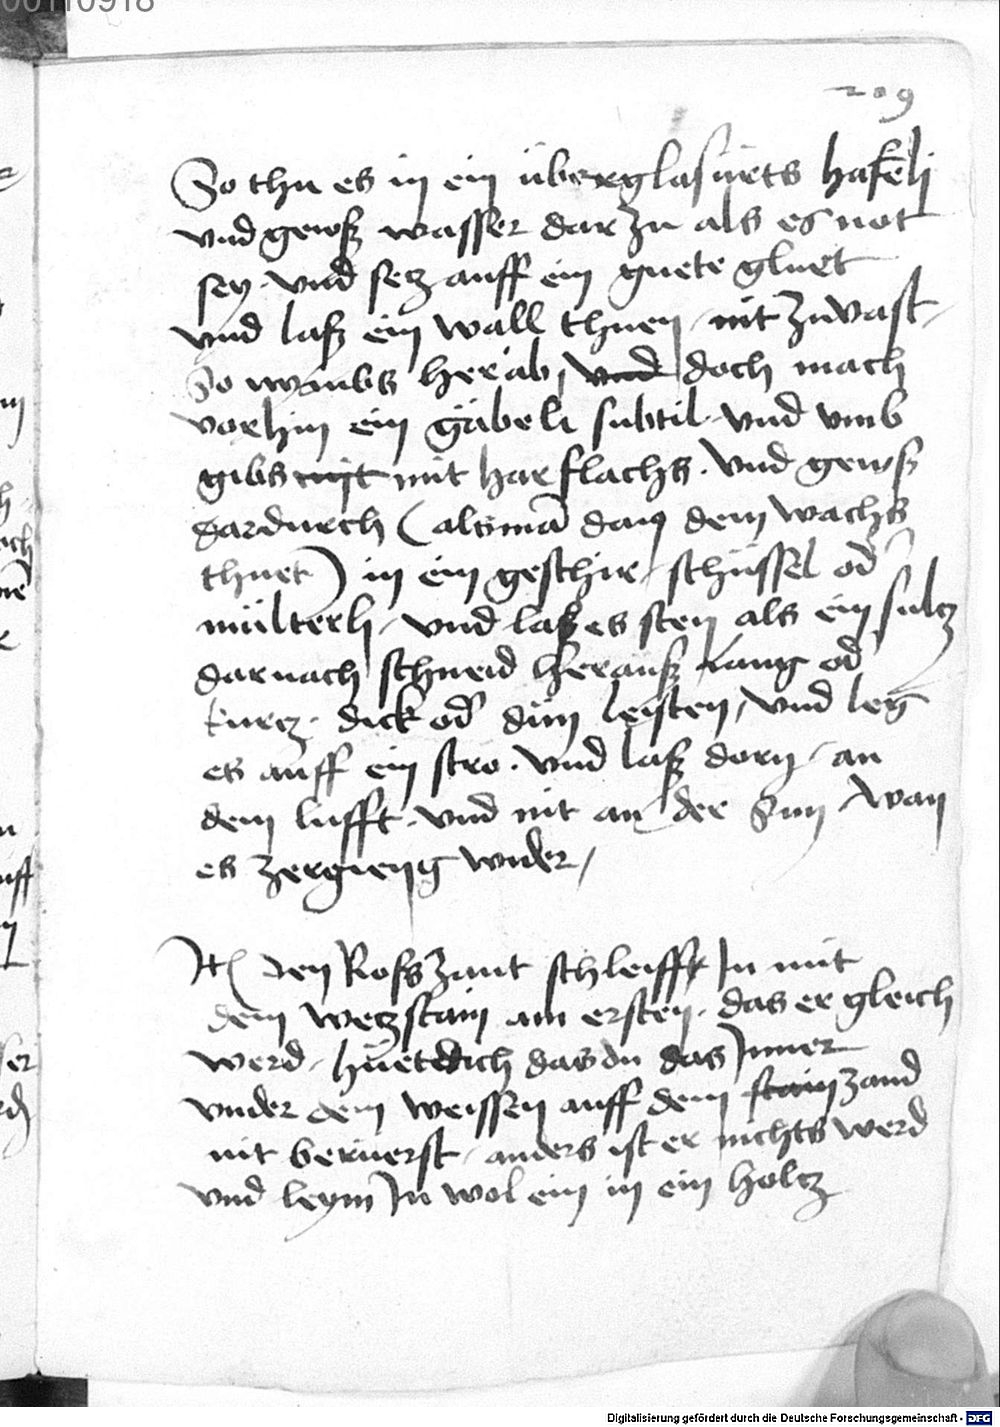 00110918
209
So thu es in ein überglasürts hafeli
vnd gewß wasser dar zu als es not
sey. vnd setz auff ein guete gluet
vnd laß ein wall thuen, nit zuvast,
So nymbs herab, vnd doch mach
vorhin ein gäbeli subtil. vnd vmb
gibs mit mit harflachs. vnd gewß
dardurch (alsmā dan dem wachs
thuet) in ein geschir, schüssel od
mülterli, vnd laß es sten als ein sultz
darnach schneid herauß lang od
kurtz. dick od dün leisten, vnd leg
es auff ein stro. vnd laß dorn, an
dem lufft. vnd nit an der Sun wan
es zergieng wider,
Itē den Roß zant schleiff In mit
dem wetzstain am ersten. das er gleich
werd, huet dich das du das Inner
vnder dem weissen auff dem stain zand
nit beruerst, anders ist er nichts werd
vnd leym In wol ein in ein holtz
Digitalisierung gefördert durch die Deutsche Forschungsgemeinschaft - DFG